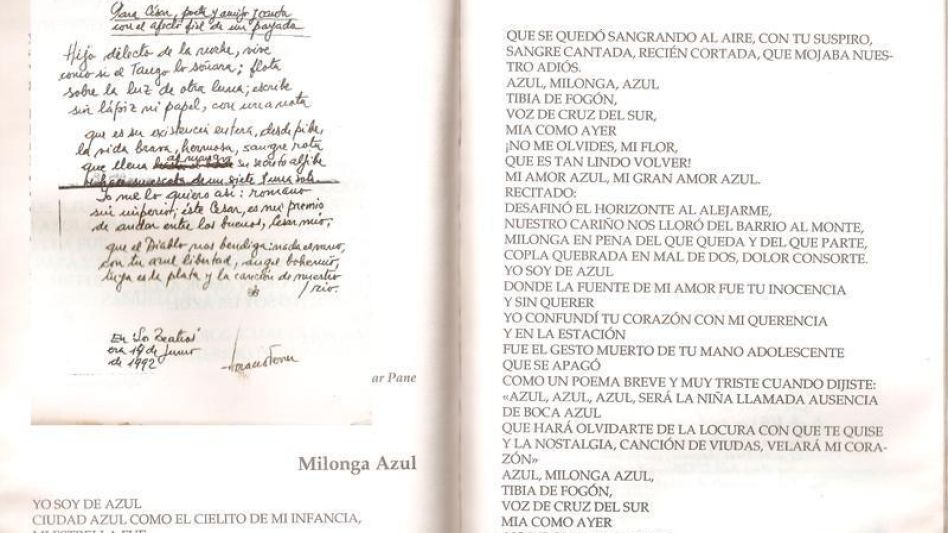 Para César, poeta y amigo
con el afecto fiel de un payada
Hijo dilecto de la noche, vive
como si el Tango lo soñara; flota
sobre la luz de otra luna; escribe
sin lápiz ni papel, con una nota
que es su existencia entera, desde pibe,
la vida brava, hermosa, sangre rota
que llena su secreto aljibe
Yo me lo quiero así: romano
sin imperio; éste César, es mi premio
de andar entre los buenos, César mío,
que el Diablo nos bendiga:
con tu azul libertad, ángel bohemio,
tuya es la plata y la canción de nuestro
río.
En "Los Teatros"
era 14 de Junio
de 1992
ar Pane
Milonga Azul
YO SOY DE AZUL
CIUDAD AZUL COMO EL CIELITO DE MI INFANCIA,
MI ESTRELLA FUE
QUE SE QUEDÓ SANGRANDO AL AIRE, CON TU SUSPIRO,
SANGRE CANTADA, RECIÉN CORTADA, QUE MOJABA NUES-
TRO ADIÓS.
AZUL, MILONGA, AZUL
TIBIA DE FOGÓN,
VOZ DE CRUZ DEL SUR,
MIA COMO AYER
¡NO ME OLVIDES, MI FLOR,
QUE ES TAN LINDO VOLVER!
MI AMOR AZUL, MI GRAN AMOR AZUL.
RECITADO:
DESAFINÓ EL HORIZONTE AL ALEJARME,
NUESTRO CARIÑO NOS LLORÓ DEL BARRIO AL MONTE,
MILONGA EN PENA DEL QUE QUEDA Y DEL QUE PARTE,
COPLA QUEBRADA EN MAL DE DOS, DOLOR CONSORTE.
YO SOY DE AZUL
DONDE LA FUENTE DE MI AMOR FUE TU INOCENCIA
Y SIN QUERER
YO CONFUNDÍ TU CORAZÓN CON MI QUERENCIA
Y EN LA ESTACIÓN
FUE EL GESTO MUERTO DE TU MANO ADOLESCENTE
QUE SE APAGÓ
COMO UN POEMA BREVE Y MUY TRISTE CUANDO DIJISTE:
«AZUL, AZUL, AZUL, SERÁ LA NIÑA LLAMADA AUSENCIA
DE BOCA AZUL
QUE HARÁ OLVIDARTE DE LA LOCURA CON QUE TE QUISE
Y LA NOSTALGIA, CANCIÓN DE VIUDAS, VELARÁ MI CORA-
ZÓN»
AZUL, MILONGA AZUL,
TIBIA DE FOGÓN,
VOZ DE CRUZ DEL SUR
MIA COMO AYER